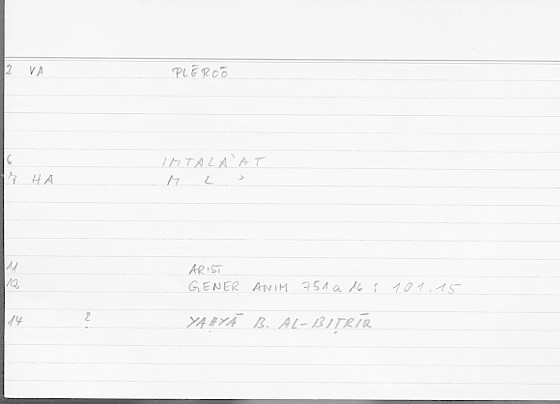 2 VA PLĒROŌ
6 IMTALAʾAT
7 HA M L ʾ
11 ARIST
12 GENER ANIM 751a16 : 101.15
14 ? YAḤYĀ B. AL-BIṬRĪQ